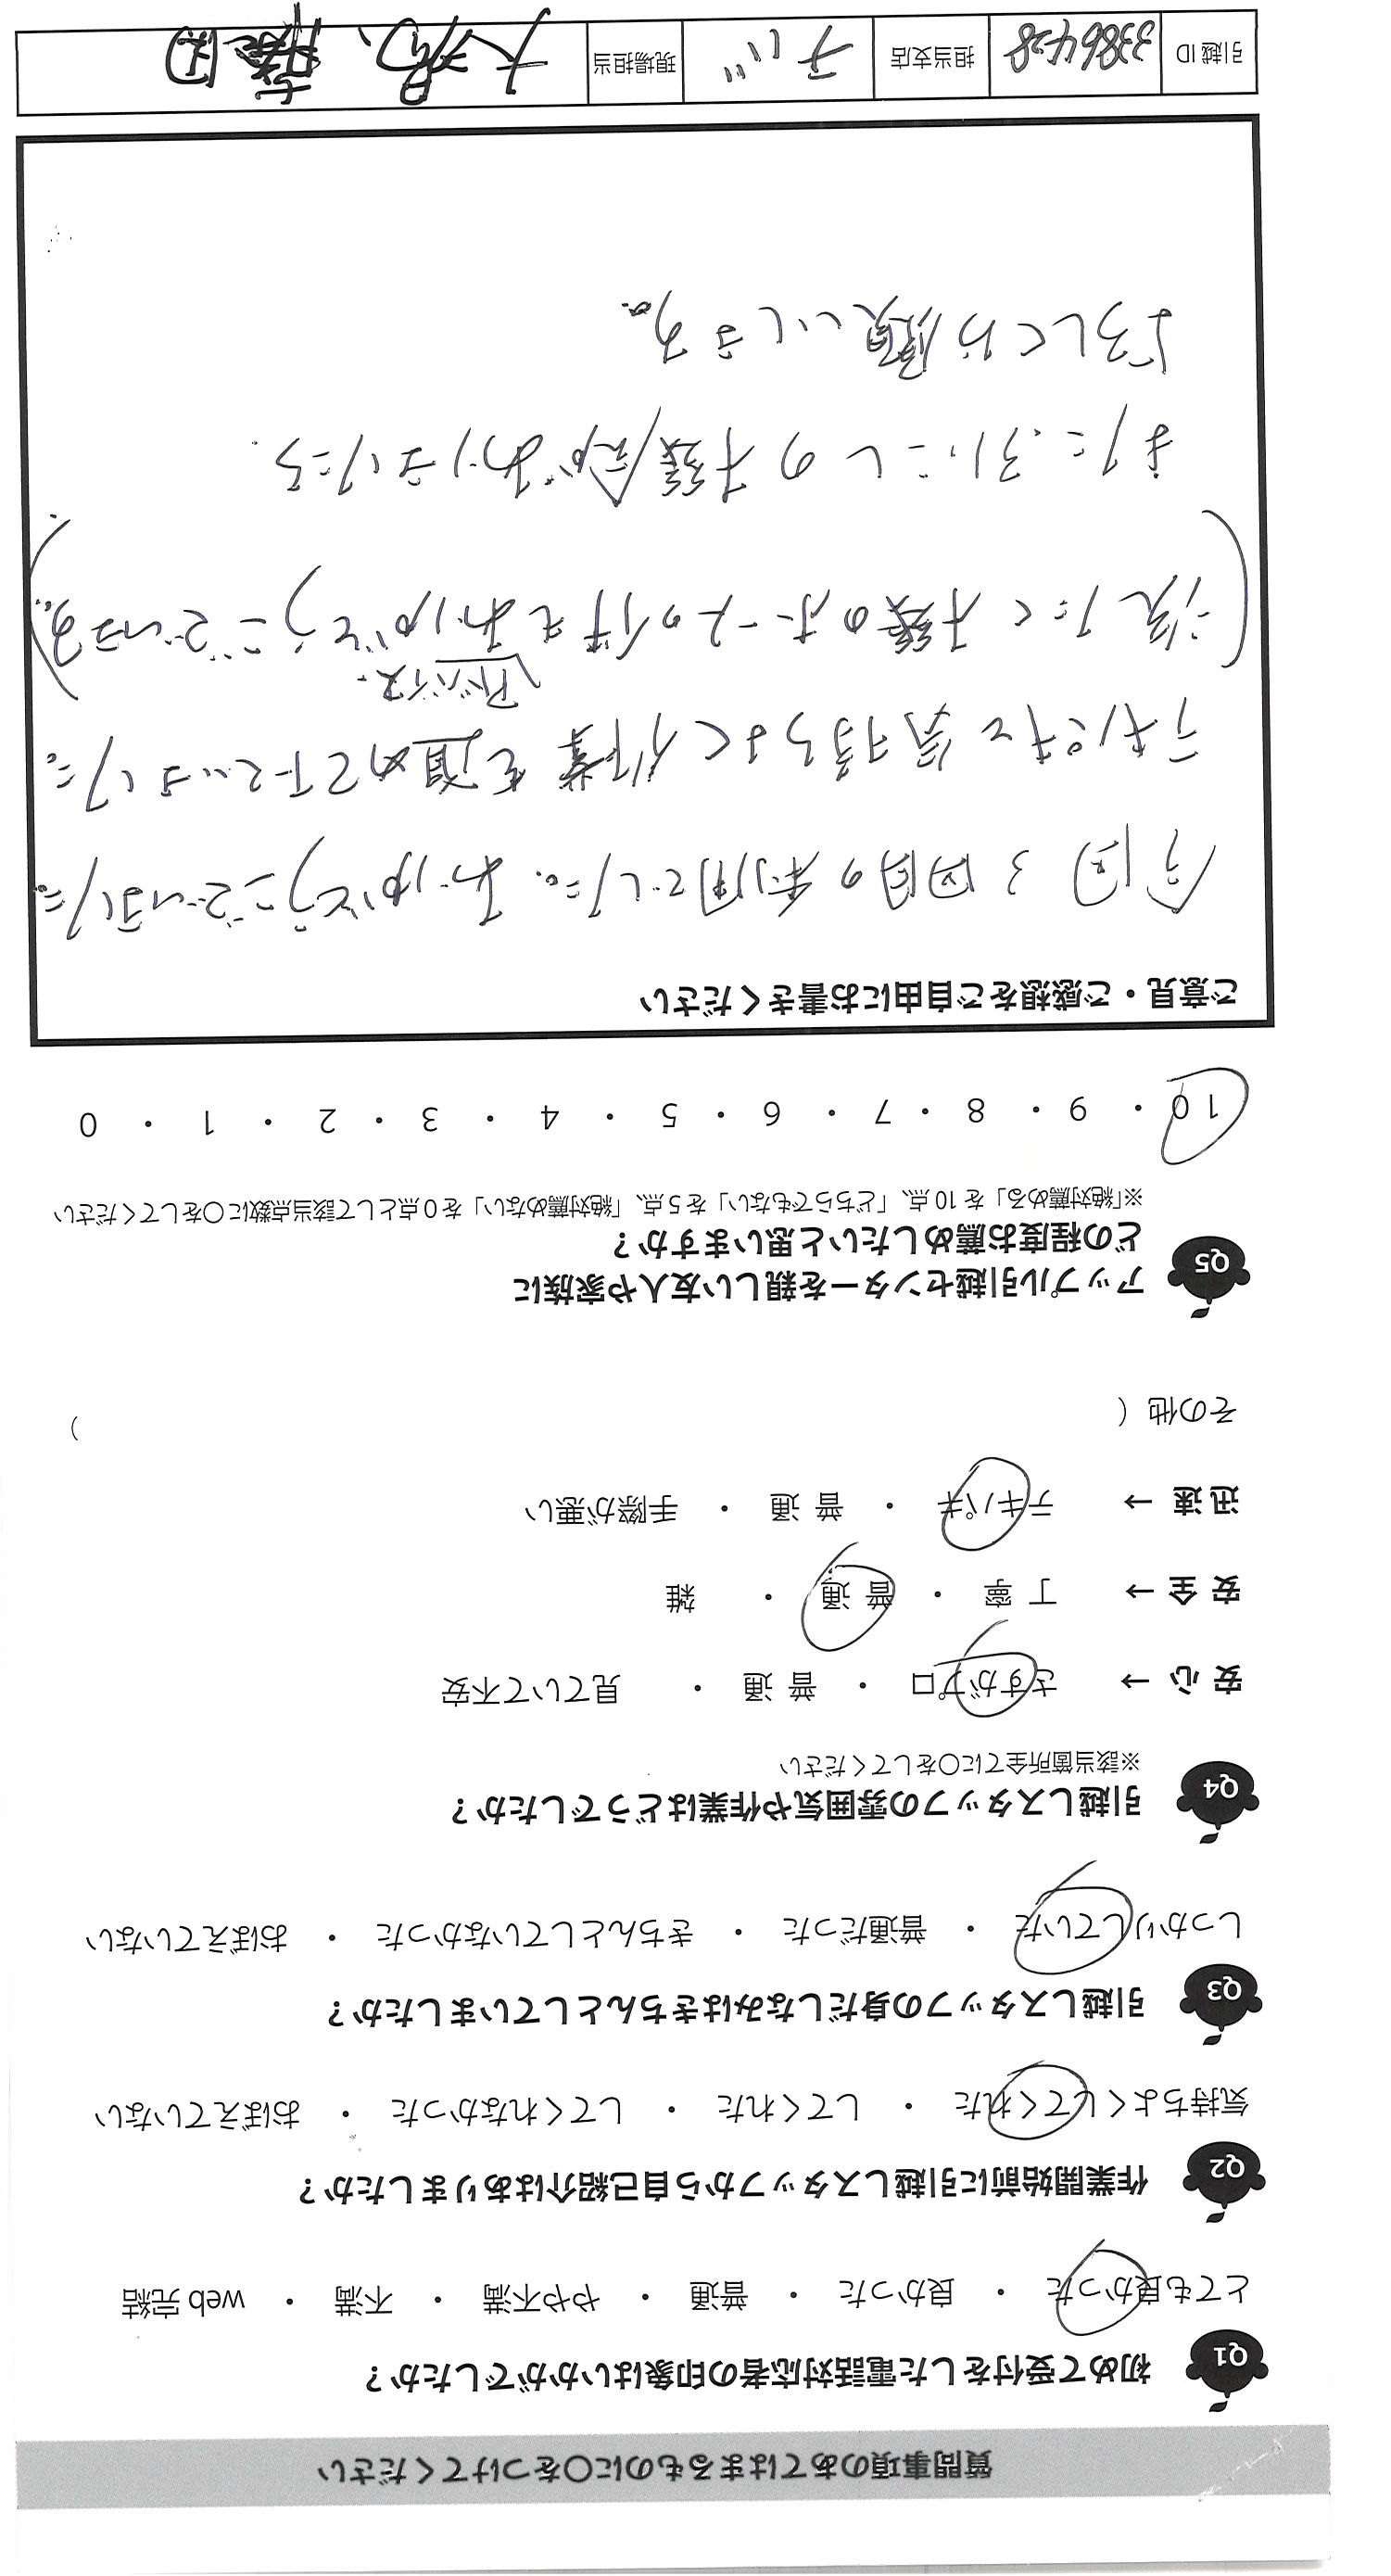 質問事項のあてはまるものに○をつけてください
Q1 初めて受付をした電話対応者の印象はいかがでしたか？
とても良かった ・ 良かった ・ 普通 ・ やや不満 ・ 不満 ・ web 完結
Q2 作業開始前に引越しスタッフから自己紹介はありましたか？
気持ちよくしてくれた ・ してくれた ・ してくれなかった ・ おぼえていない
Q3 引越しスタッフの身だしなみはきちんとしていましたか？
しっかりしていた ・ 普通だった ・ きちんとしていなかった ・ おぼえていない
Q4 引越しスタッフの雰囲気や作業はどうでしたか？
※該当箇所全てに○をしてください
安心 → さすがプロ ・ 普通 ・ 見ていて不安
安全 → 丁寧 ・ 普通 ・ 雑
迅速 → テキパキ ・ 普通 ・ 手際が悪い
その他（ ）
Q5 アップル引越センターを親しい友人や家族に
どの程度お薦めしたいと思いますか？
※「絶対薦める」を 10 点、「どちらでもない」を 5 点、「絶対薦めない」を 0 点として該当点数に○をしてください
10 ・ 9 ・ 8 ・ 7 ・ 6 ・ 5 ・ 4 ・ 3 ・ 2 ・ 1 ・ 0
ご意見・ご感想をご自由にお書きください
今回3回目の利用でした。ありがとうございました。
テキパキと気持ちよく作業を進めて下さいました。
アドバイス
(後 たく 機のホースの件もありがとうございます。)
また、引こしの機会がありましたら
よろしくお願いします。
引越 ID 3386428 担当支店 チバ 現場担当 大